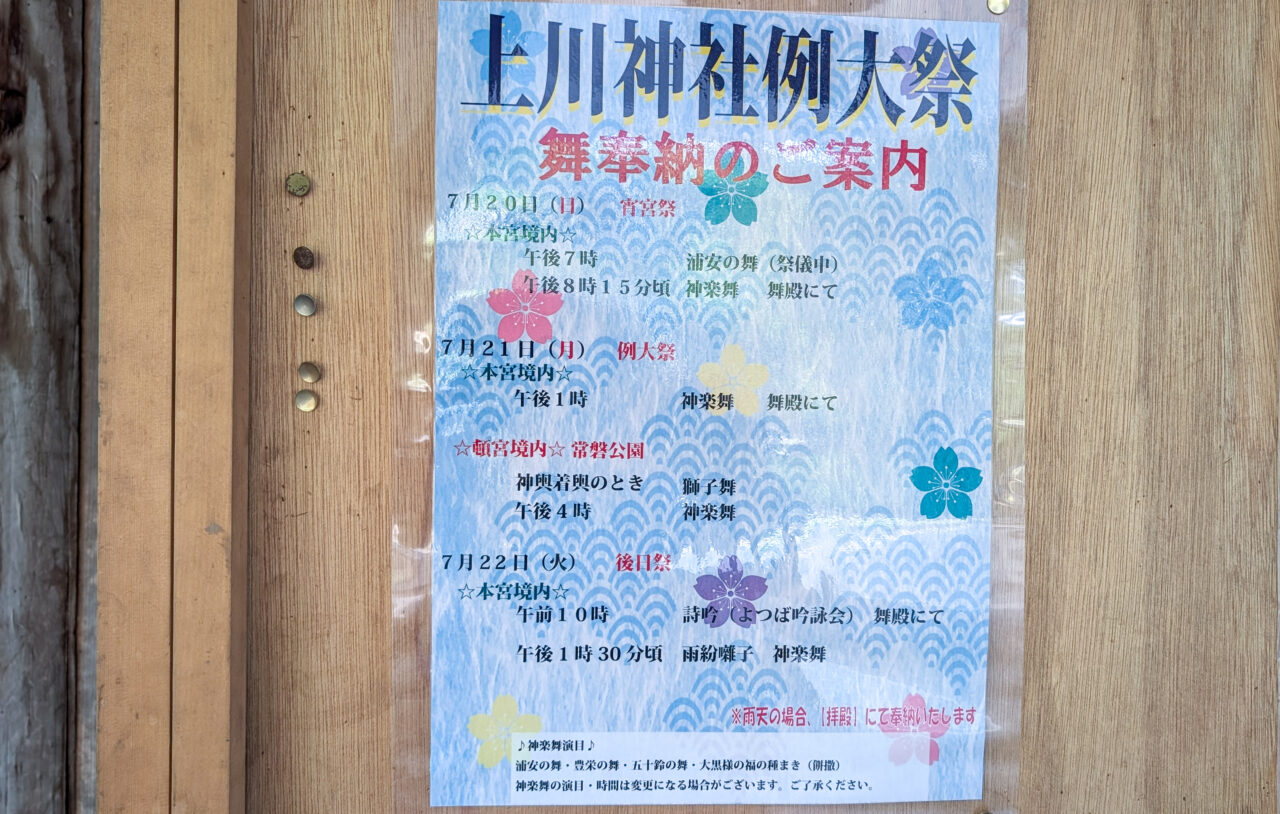 上川神社例大祭
舞奉納のご案内
7月20日（日） 宵宮祭
☆本宮境内☆
午後7時 浦安の舞（祭儀中）
午後8時15分頃 神楽舞 舞殿にて
7月21日（月） 例大祭
☆本宮境内☆
午後1時 神楽舞 舞殿にて
☆頓宮境内☆ 常磐公園
神輿着輿のとき 獅子舞
午後4時 神楽舞
7月22日（火） 後日祭
☆本宮境内☆
午前10時 詩吟（よつば吟詠会） 舞殿にて
午後1時30分頃 雨紛囃子 神楽舞
※雨天の場合、【拝殿】にて奉納いたします
♪神楽舞演目♪
浦安の舞・豊栄の舞・五十鈴の舞・大黒様の福の種まき（餅撒）
神楽舞の演目・時間は変更になる場合がございます。ご了承ください。